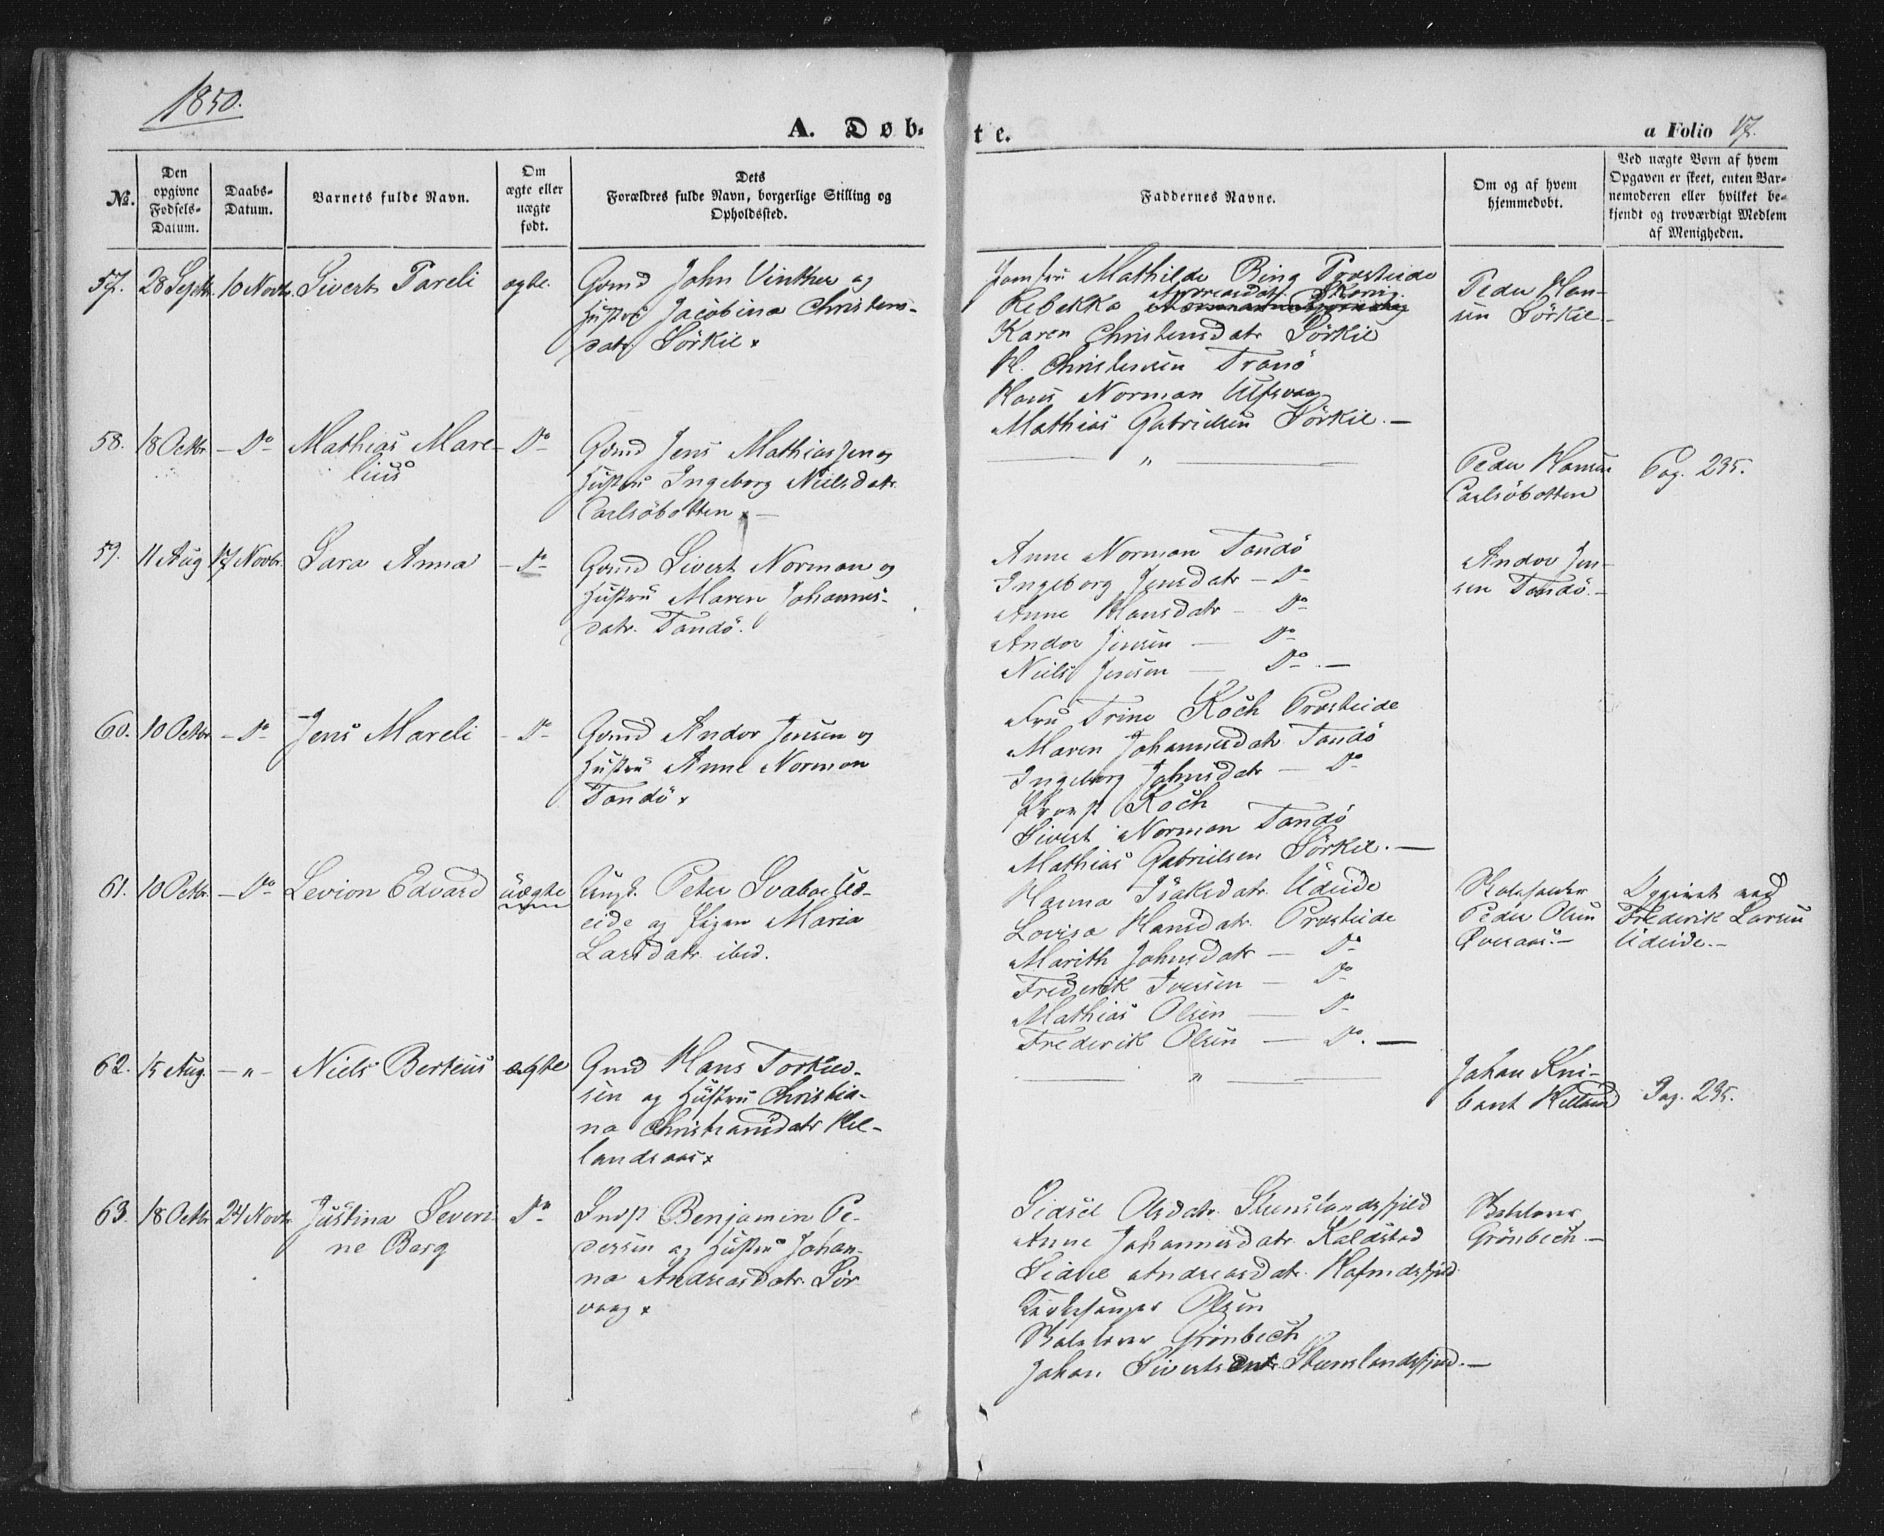 1850.
A. Døb-
te.
a Folio 17.
No.
Den opgivne Fødsels-Datum.
Daabs-Datum.
Barnets fulde Navn.
Om ægte eller uægte født.
Dets Forældres fulde Navn, borgerlige Stilling og Opholdssted.
Faddernes Navne.
Om og af hvem hjemmedøbt.
Ved uægte Børn af hvem Opgaven er skeet, enten Barnemoderen eller hvilket bekjendt og troværdigt Medlem af Menigheden.
57. 28 Septbr. 10 Novbr. Sivert Pareli ægte.
Gmd John Vinther og
Hustru Jacobina Christens-
datr Sörkil
Jomfru Mathilde Ring Præsteide
Rebekka Andreasdatr
Karen Christensdatr Sörkil
H. Christensen Tranö
Hans Norman Ulfsvaag
Mathias Gabrielsen Sörkil. —
Peder Han-
sen Sörkil —
58. 18 Octbr. — Do Mathias Mare-
lius
Do
Gmd Jens Mathiassen og
Hustru Ingeborg Nielsdatr
Carlsöbotten
— " —
Peder Hansen
Carlsöbotten
Pag. 235.
59. 11 Aug 17 Novbr. Sara Anna — Do
Gmd Sivert Norman og
Hustru Maren Johannes-
datr. Tandö.
Anne Norman Tandö
Ingeborg Jensdatr — Do
Anne Hansdatr — Do
Andor Jensen — Do
Niels Jensen — Do —
Andor Jen-
sen Tandö. —
60. 10 Octbr — Do Jens Mareli — Do
Gmd Andor Jensen og
Hustru Anne Norman
Tandö
Fru Trine Koch Præsteide
Maren Johannesdatr Tandö
Ingeborg Johnsdatr — Do
Provst Koch
Sivert Norman Tandö
Mathias Gabrielsen Sörkil. —
61. 10 Octbr — Do Levion Edvard uægte
Ungk. Peter Svaboe Ud-
eide og Pigen Maria
Larsdatr. ibid.
Hanna Isaksdatr. Udeide
Lovisa Hansdatr. Præsteide
Marith Johnsdatr — Do
Frederik Iversen — Do
Mathias Olsen — Do
Frederik Olsen — Do. —
Skoleholder
Peder Olsen
Øveraas. —
Opgivet ved
Frederik Larsen
Udeide. —
62. 15 Aug. — " — Niels Berteus ægte
Gmd Hans Torkild-
sen og Hustru Christia-
na Christiansdatr Hel-
landsaas
— " —
Johan Kni-
bant Helland
Pag. 235.
63. 18 Octbr 24 Novbr. Justina Severi-
ne Berg
Do
Indst Benjamin Pe-
dersen og Hustru Johan-
na Andreasdatr. Sör-
vaag
Sidsel Olsdatr. Stenslandsfjeld
Anne Johannesdatr. Kaldstad
Sidsel Andreasdatr.
Kirkesanger Olsen
Grönbech
Johan Sivertsen Stenslandsfjeld. —
Grönbech. —